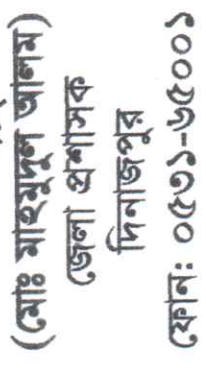 (মোঃ মাহমুদুল আলম)
জেলা প্রশাসক
দিনাজপুর
ফোন: ০৫৩১-৬৫০০১